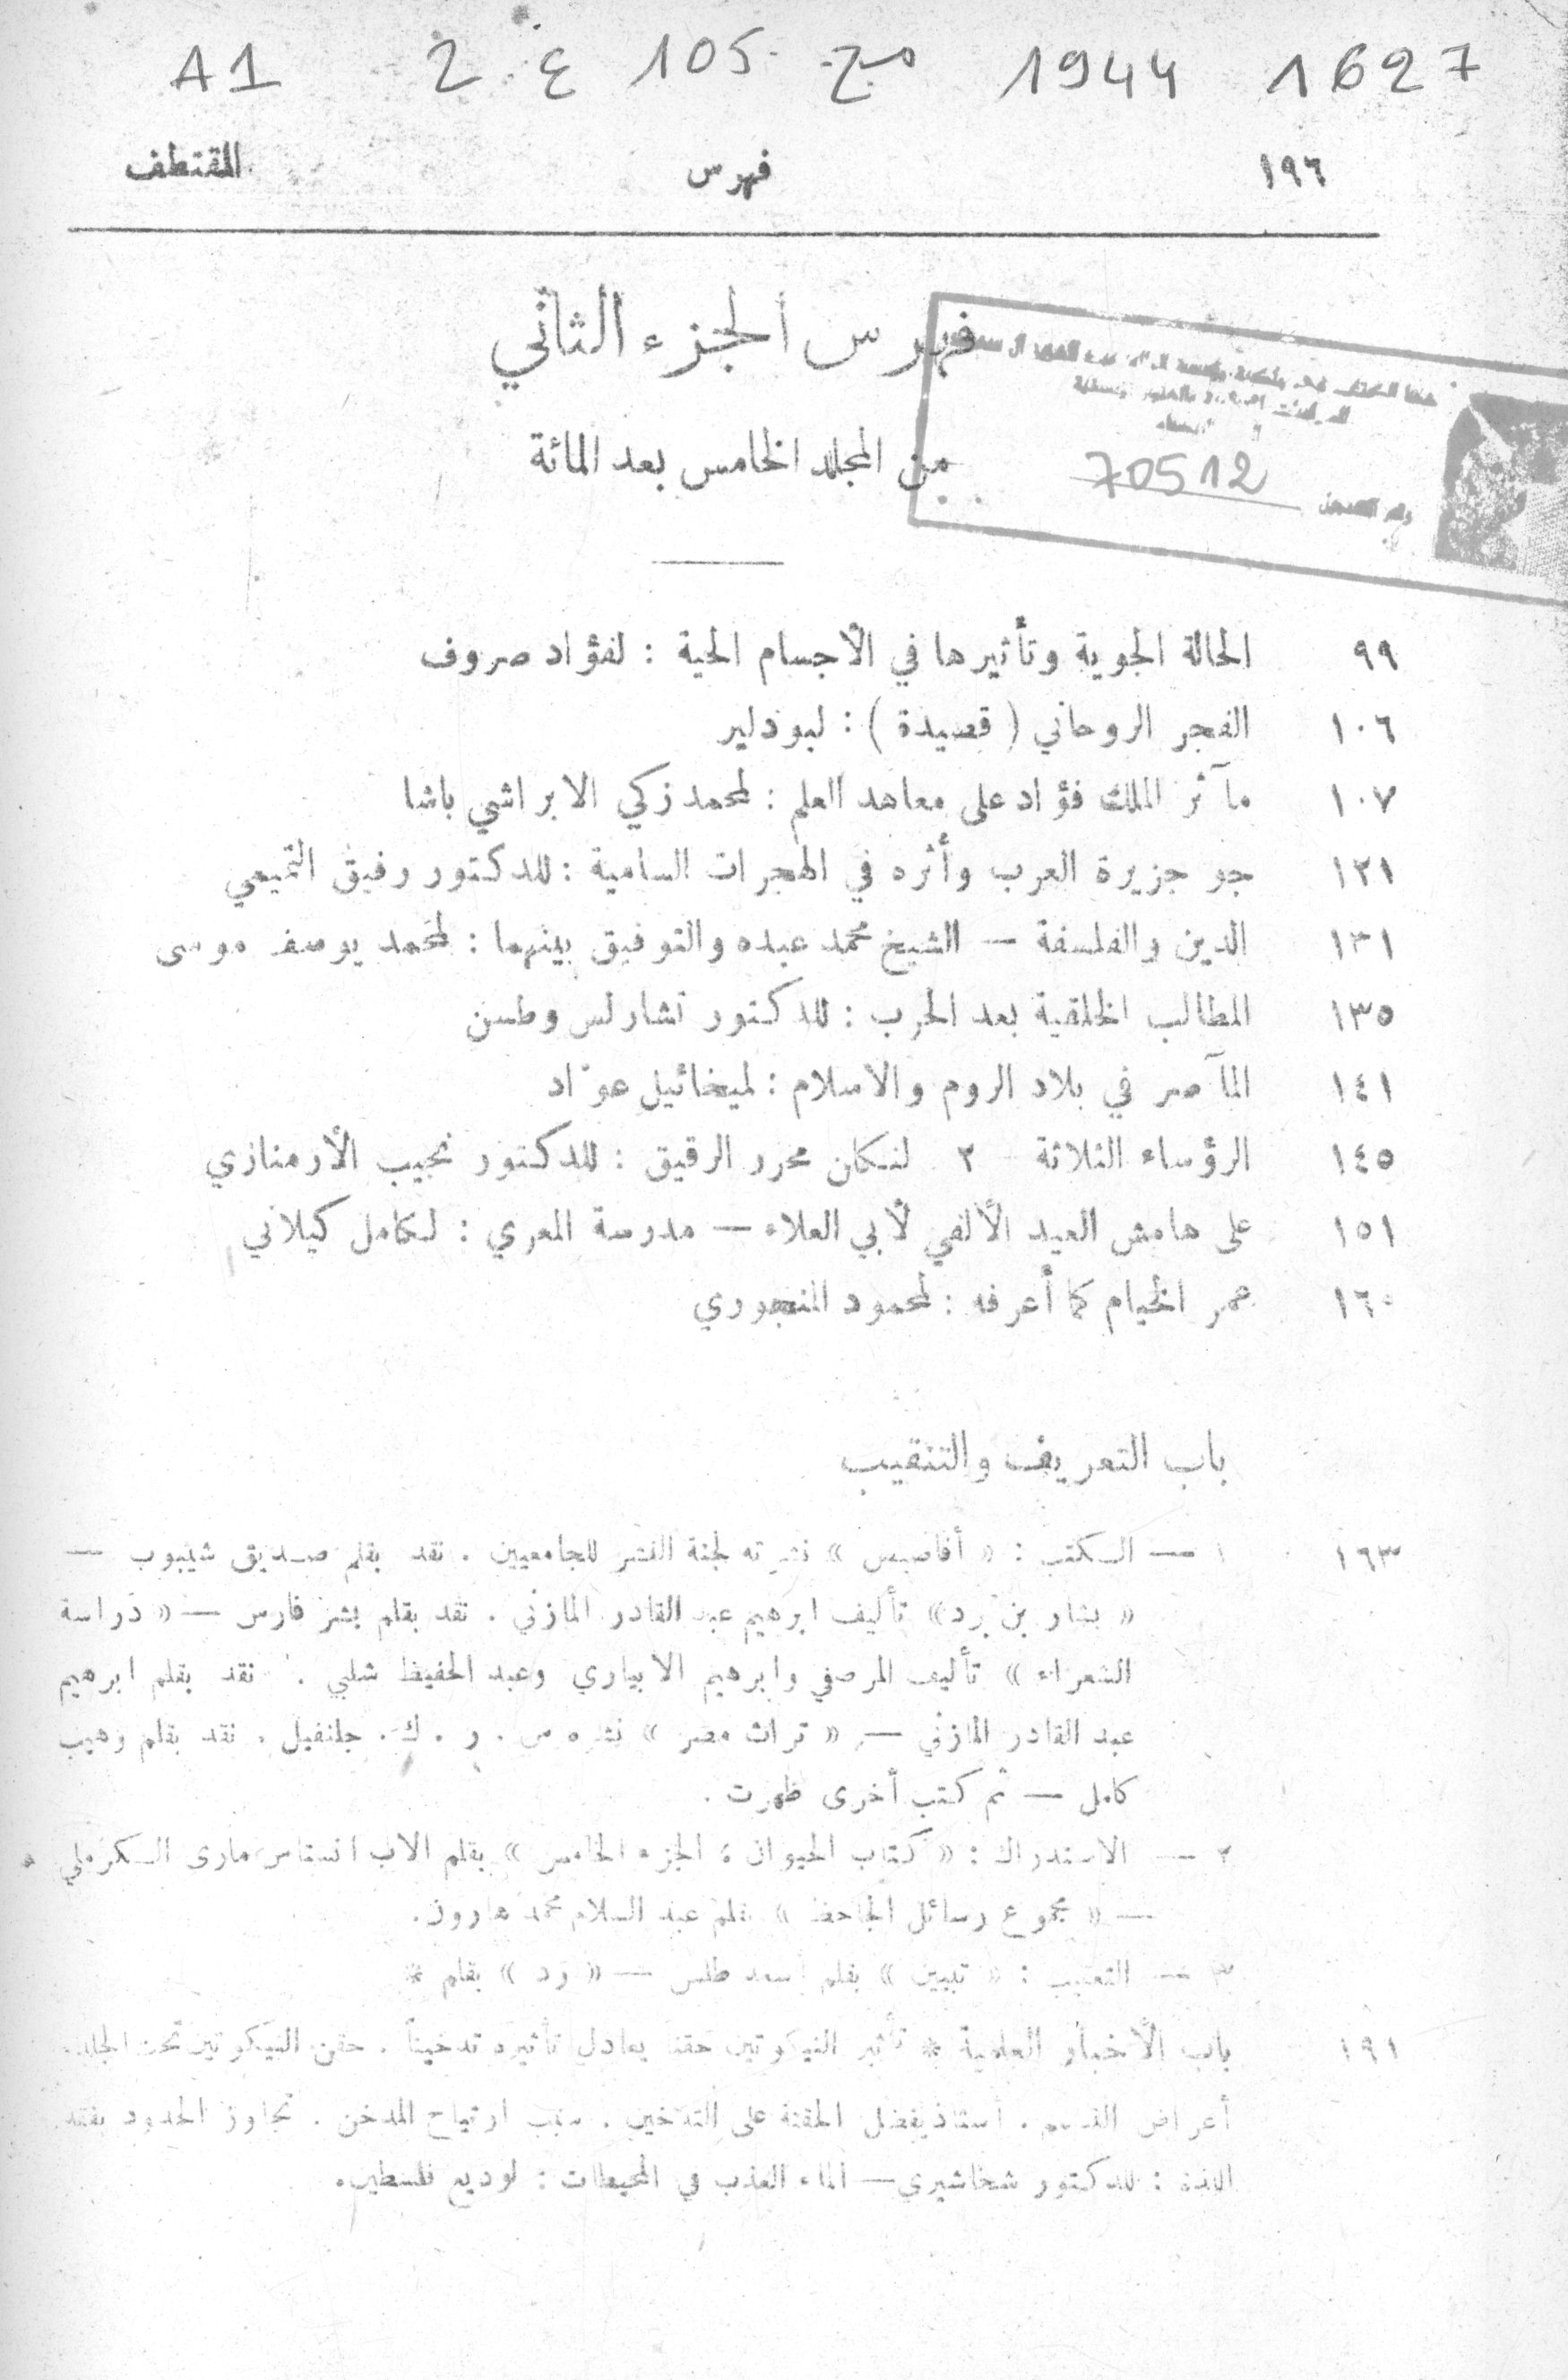 A1 2 ع 105 مج 1944 1627
١٩٦ فهرس المقتطف
فهرس الجزء الثاني
من المجلد الخامس بعد المائة
70512
٩٩ الحالة الجوية وتأثيرها في الأجسام الحية : لفؤاد صروف
١٠٦ الفجر الروحاني ( قصيدة ) : لبودلير
١٠٧ مآثر الملك فؤاد على معاهد العلم : لمحمد زكي الابراشي باشا
١٢١ جو جزيرة العرب وأثره في الهجرات السامية : للدكتور رفيق التميمي
١٣١ الدين والفلسفة — الشيخ محمد عبده والتوفيق بينهما : لمحمد يوسف موسى
١٣٥ المطالب الخلقية بعد الحرب : للدكتور تشارلس وطسن
١٤١ المآصر في بلاد الروم والاسلام : لميخائيل عوّاد
١٤٥ الرؤساء الثلاثة - ٢ لنكان محرر الرقيق : للدكتور نجيب الأرمنازي
١٥١ على هامش العيد الألفي لأبي العلاء — مدرسة المعري : لكامل كيلاني
١٦٠ عمر الخيام كما أعرفه : لمحمود المنجوري
باب التعريف والتنقيب
١٦٣ ١ — الكتب : « أقاصيص » نشرته لجنة النشر للجامعيين . نقد بقلم صديق شيبوب —
« بشار بن برد » تأليف ابرهيم عبد القادر المازني . نقد بقلم بشر فارس — « دراسة
الشعراء » تأليف المرصفي وابرهيم الابياري وعبد الحفيظ شلبي . نقد بقلم ابرهيم
عبد القادر المازني — « تراث مصر » نشره س . ر . ك . جلنفيل . نقد بقلم وهيب
كامل — ثم كتب أخرى ظهرت .
٢ — الاستدراك : « كتاب الحيوان ، الجزء الخامس » بقلم الاب انستاس ماري الكرملي .
— « مجموع رسائل الجاحظ » بقلم عبد السلام محمد هارون .
٣ — التعقيب : « تبيين » بقلم اسعد طلس — « رد » بقلم *
١٩١ باب الأخبار العلمية * تأثير النيكوتين حقناً يعادل تأثيره تدخيناً . حقن النيكوتين تحت الجلد
أعراض التسمم . استاذ يفضل الحقنة على التدخين . سبب ارتياح المدخن . تجاوز الحدود يفقد
اللذة : للدكتور شخاشيري — الماء العذب في المحيطات : لوديع فلسطين